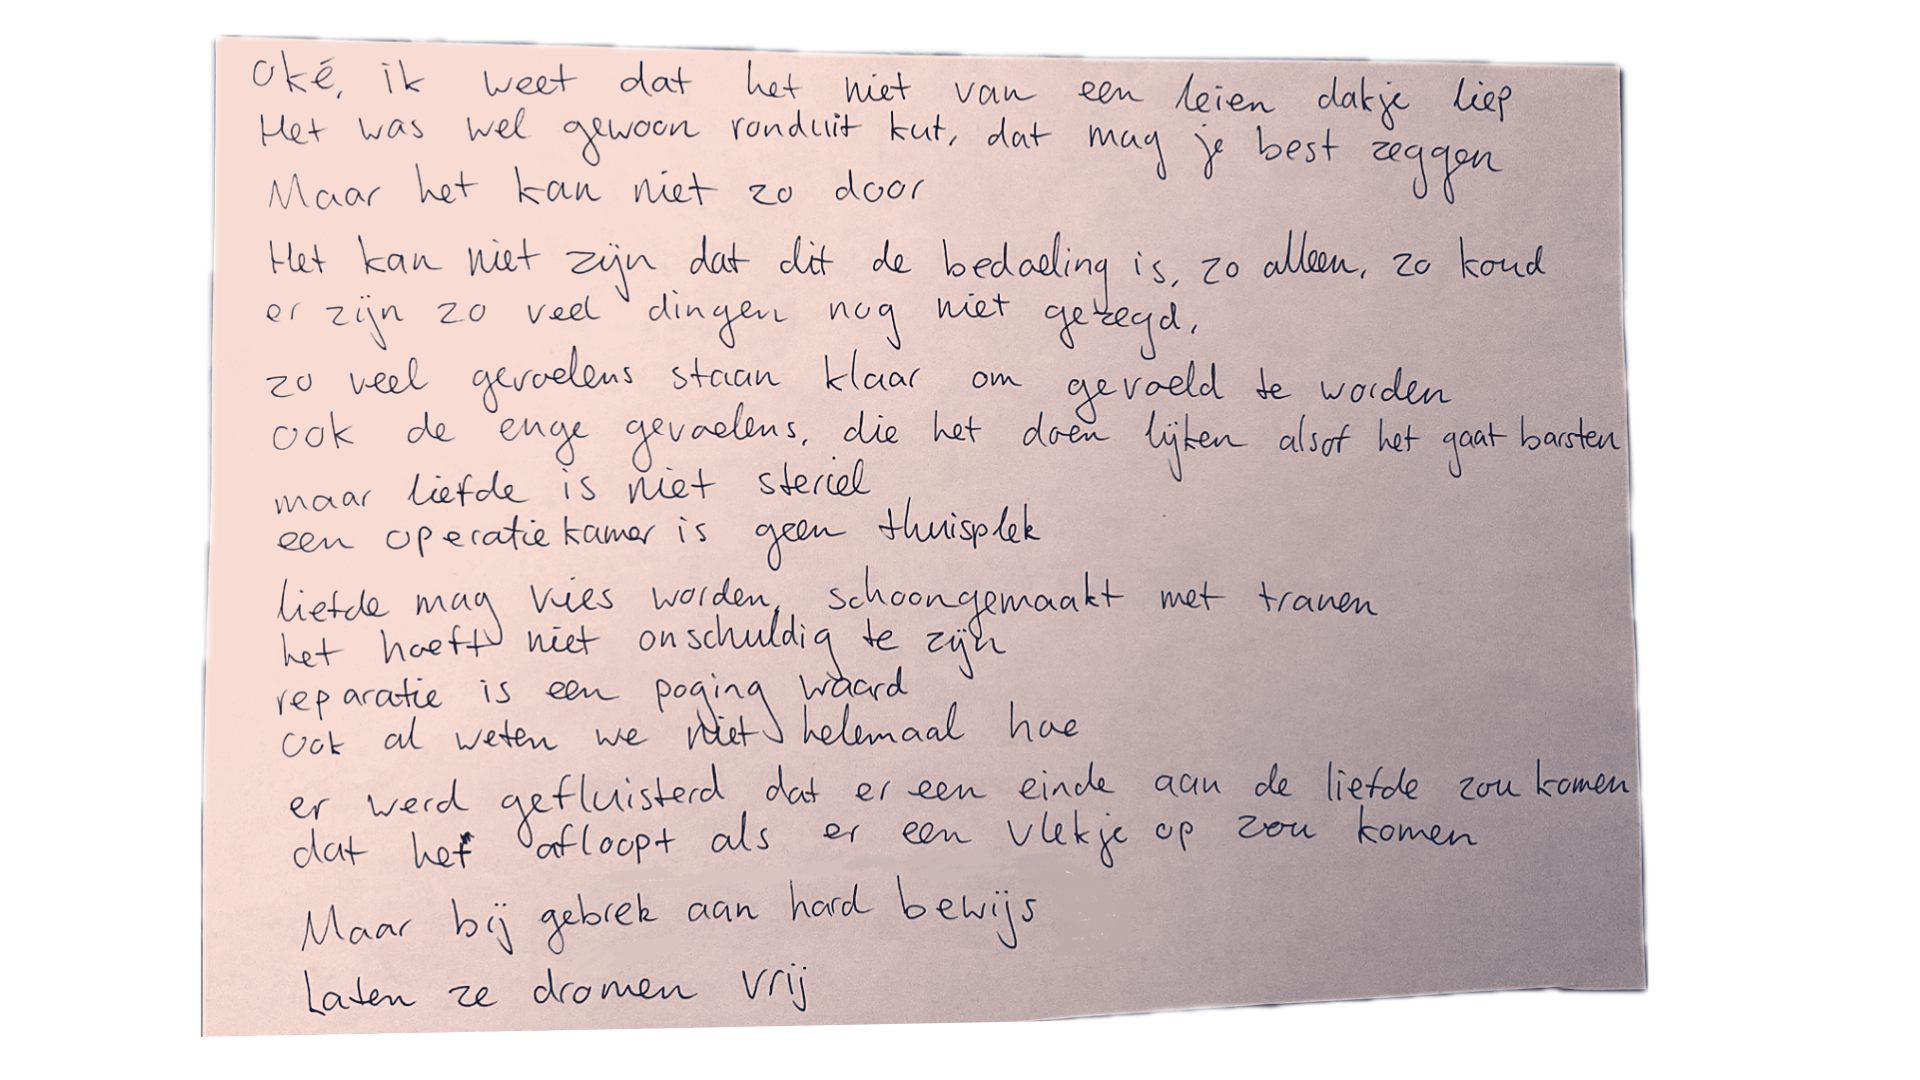 Oké, ik weet dat het niet van een leien dakje liep
Het was wel gewoon ronduit kut, dat mag je best zeggen
Maar het kan niet zo door
Het kan niet zijn dat dit de bedoeling is, zo alleen, zo koud
er zijn zo veel dingen nog niet gezegd,
zo veel gevoelens staan klaar om gevoeld te worden
ook de enge gevoelens, die het doen lijken alsof het gaat barsten
maar liefde is niet steriel
een operatiekamer is geen thuisplek
liefde mag vies worden, schoongemaakt met tranen
het hoeft niet onschuldig te zijn
reparatie is een poging waard
ook al weten we niet helemaal hoe
er werd gefluisterd dat er een einde aan de liefde zou komen
dat het afloopt als er een vlekje op zou komen
Maar bij gebrek aan hard bewijs
Laten ze dromen vrij